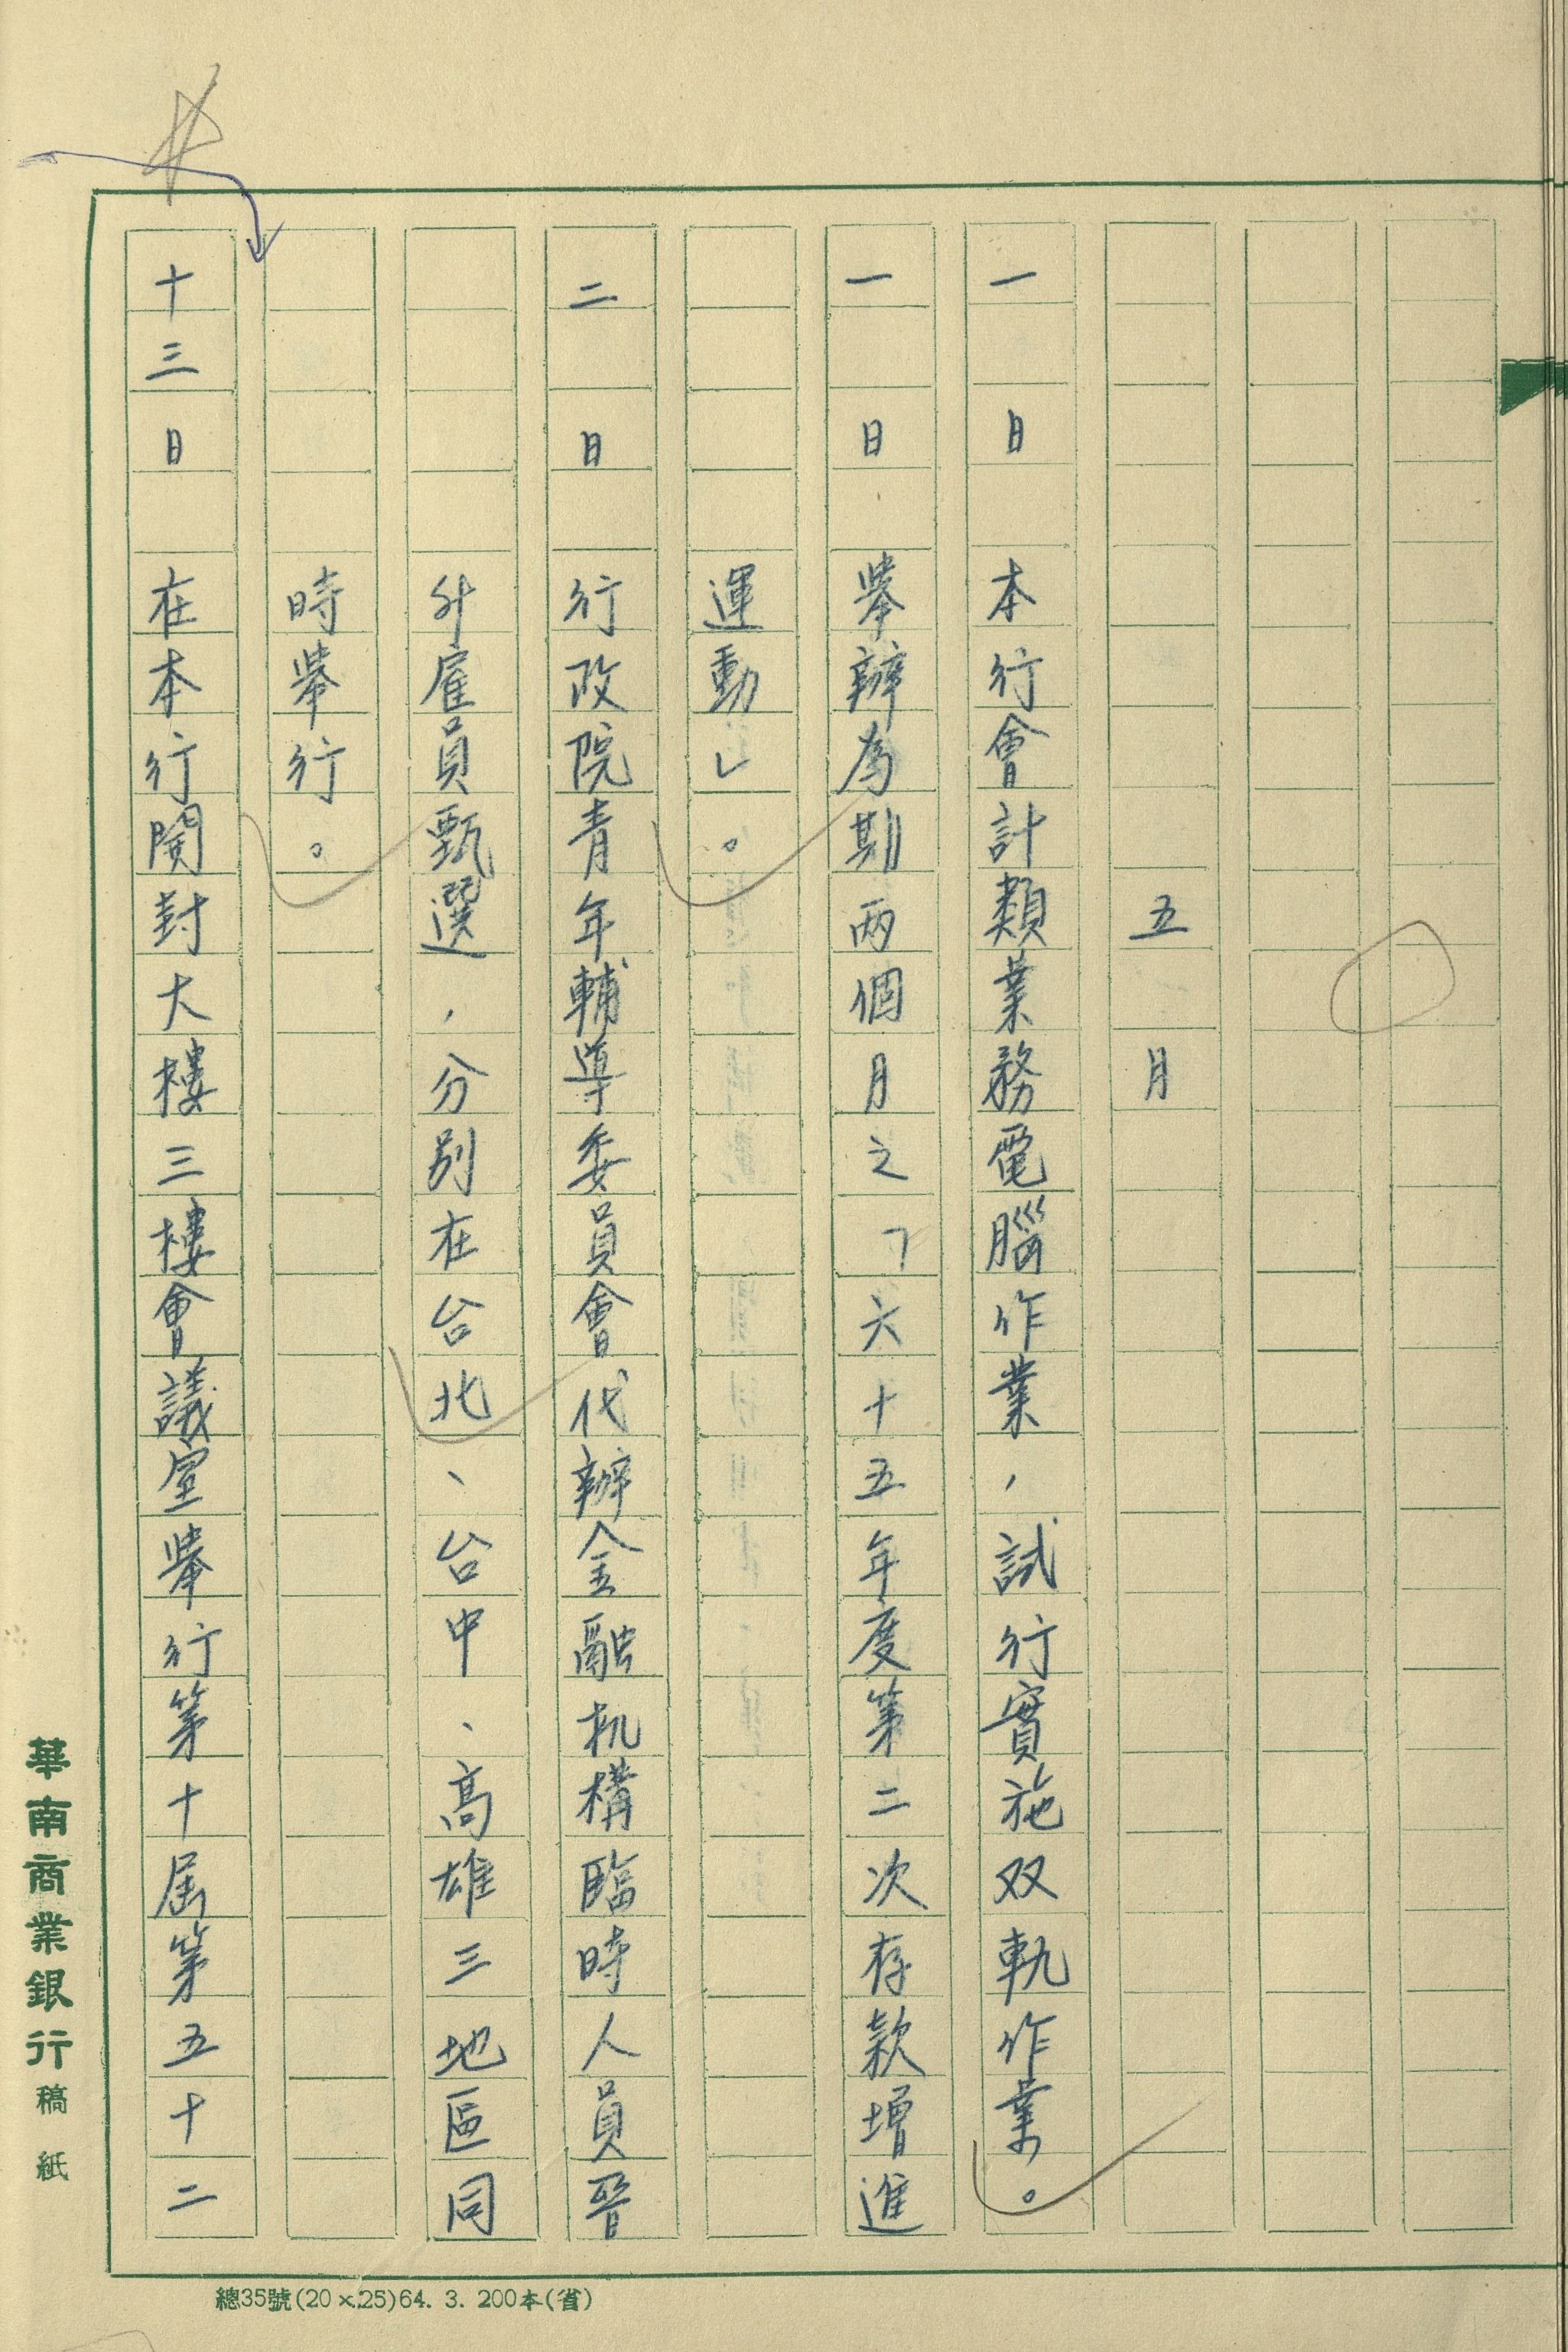 五月
一日　本行會計類業務電腦作業，試行實施双軌作業。
一日　舉辦為期兩個月之「六十五年度第二次存款增進
運動」。
二日　行政院青年輔導委員會代辦金融机構臨時人員晉
升雇員甄選，分別在台北、台中、高雄三地區同
時舉行。
十三日　在本行開封大樓三樓會議室舉行第十屆第五十二
華南商業銀行稿紙
總35號(20×25)64. 3. 200本(省)